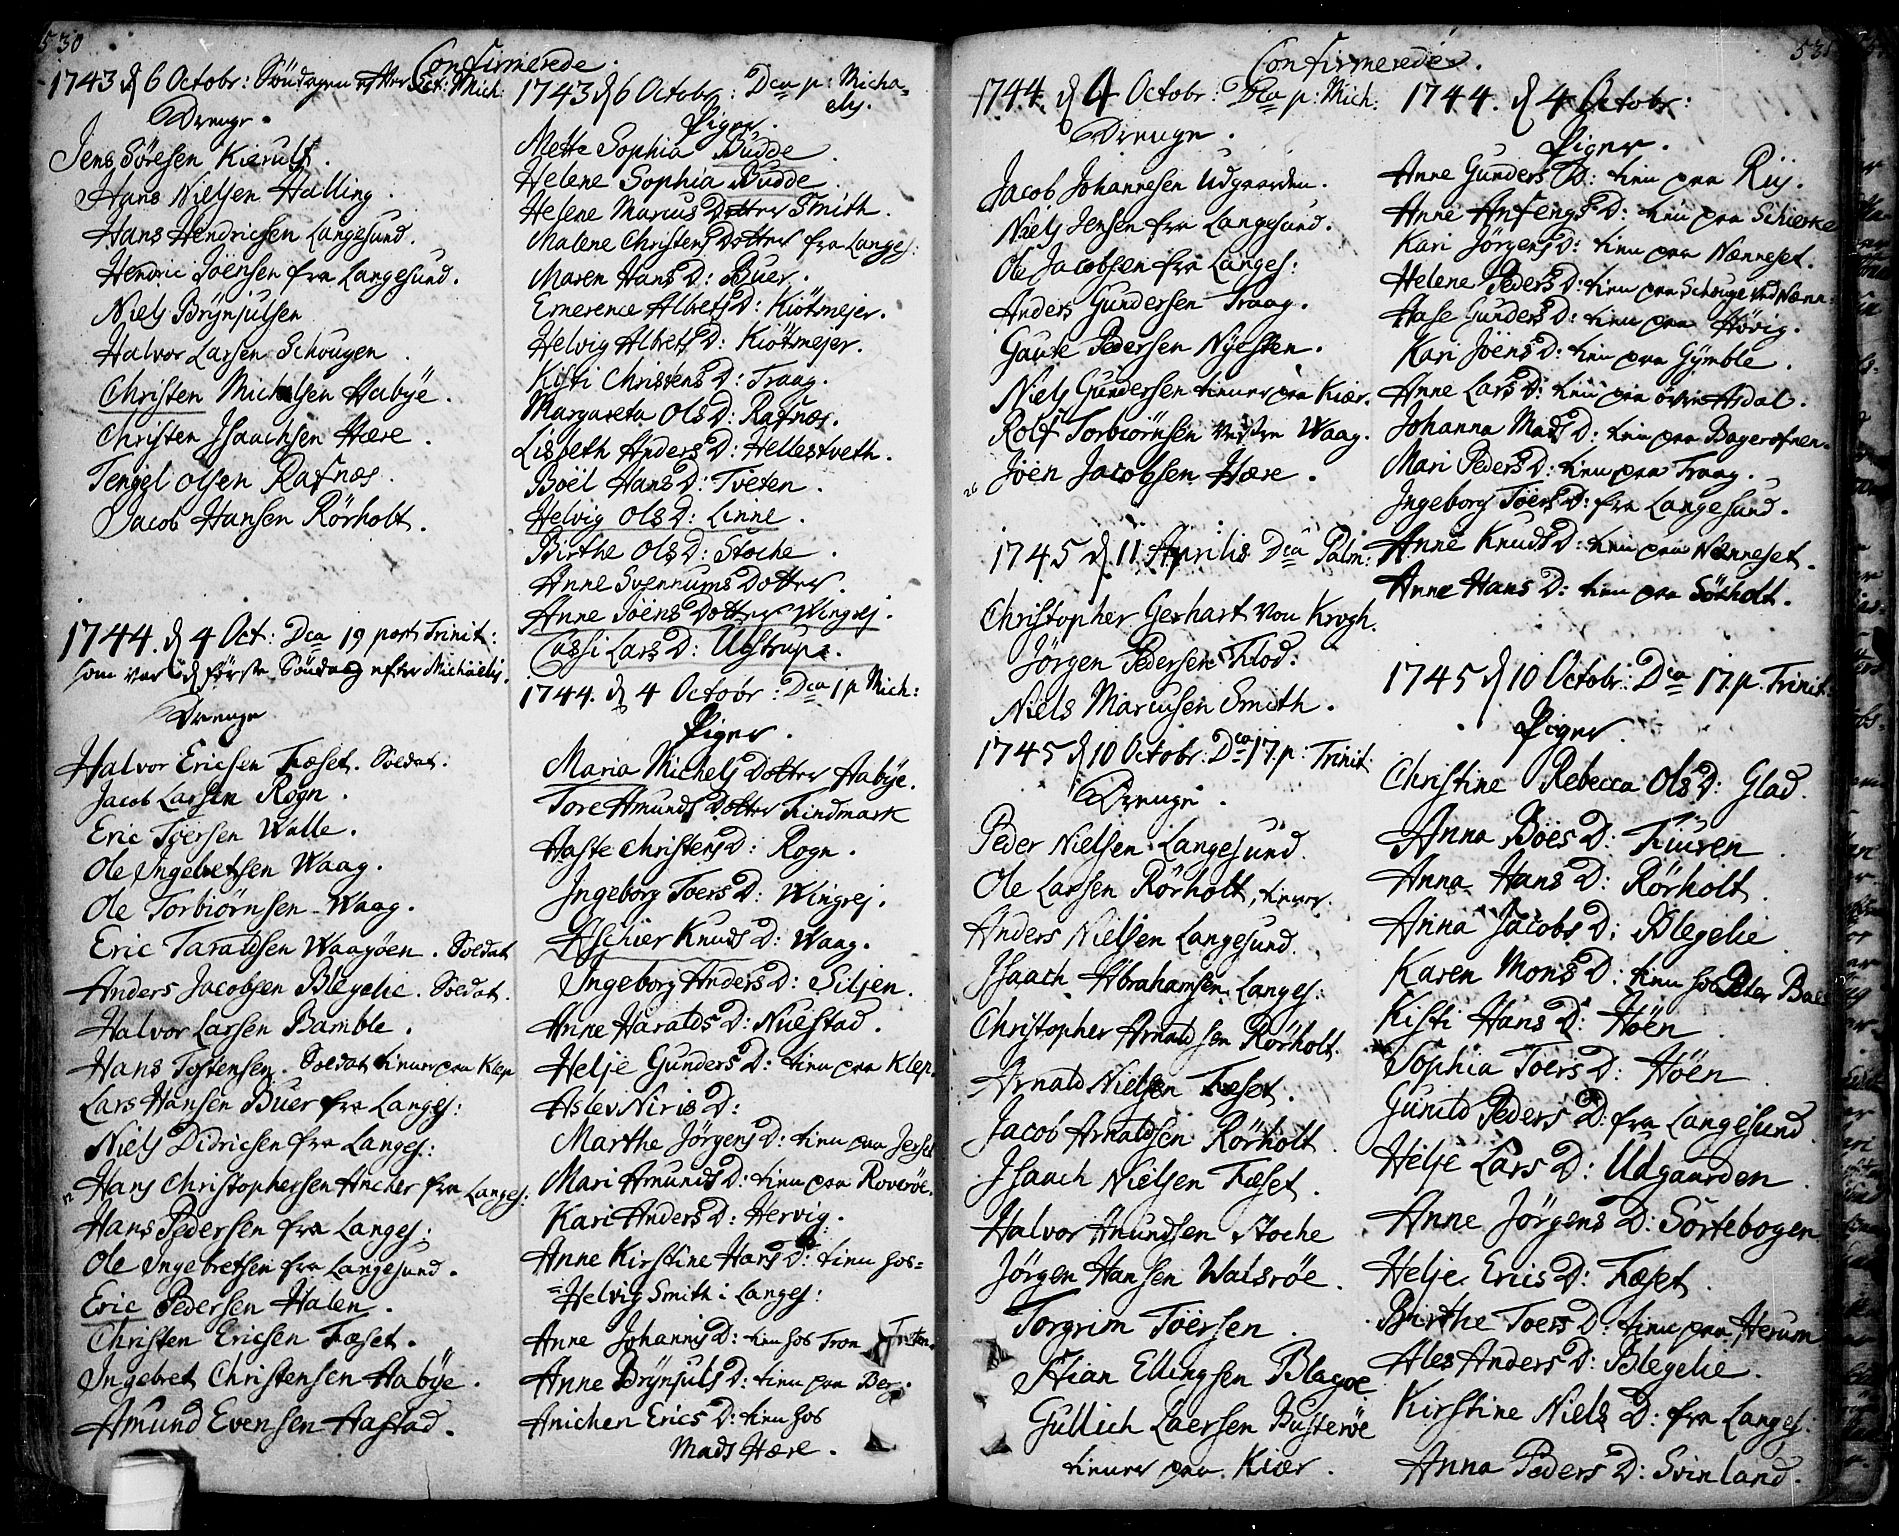 530
Confirmerede.
1743 d 6 Octobr: Söndagen efter Sct: Mich:
Drenge.
Jens Sörensen Kierulf.
Hans Nielsen Halling.
Hans Hendrichsen Langesund.
Hendric Joensen fra Langesund.
Niels Brynjulsen
Halvor Larsen Schougen.
Christen Michelsen Habye.
Christen Isaachsen Hære.
Tengel Olsen Rafnæs.
Jacob Hansen Rörholt.
1744 d 4 Oct: Dca 19 post Trinit:
som var d förste Söndag efter Michaelis.
Drenge
Halvor Ericsen Fæset. Soldat.
Jacob Larsen Rogn.
Eric Toersen Walle.
Ole Ingebretsen Waag.
Ole Torbiörnsen Waag.
Eric Taraldsen Waagöen. Soldat
Anders Jacobsen Blegelie. Soldat.
Halvor Larsen Bamble.
Hans Tostensen. Soldat tiener paa Klep
Lars Hansen Buer fra Langes:
Niels Didricsen fra Langes:
Hans Christophersen Ancher fra Langes:
Hans Pedersen fra Langes:
Ole Ingebretsen fra Langesund.
Eric Pedersen Halen.
Christen Ericsen Fæset.
Ingebret Christensen Habye.
Amund Evensen Aastad.
1743 d 6 Octobr: Dca p: Micha=
elis.
Piger.
Mette Sophia Budde.
Helene Sophia Budde.
Helene Marcus Dotter Smith.
Malene Christens Dotter fra Langes:
Maren Hans D: Buer.
Emerence Alberts D: Kiötmejer.
Helvig Alberts D: Kiötmejer.
Kisti Christens D: Traag.
Margareta Ols D: Rafnæs.
Lisbeth Anders D: Hellestveth.
Boël Hans D: Tveten.
Helvig Ols D: Linne.
Birthe Ols D: Stoche.
Anne Svennums Dotter.
Anne Joens Dotter Wingrej.
Cassi Lars D: Ustrup.
1744. d 4 Octobr: Dca 1 p Mich:
Piger.
Maria Michels Dotter Habye.
Tore Amunds Dotter Findmark
Haste Christens D: Rogn.
Ingeborg Toers D: Wingrej.
Aschier Knuds D: Waag.
Ingeborg Anders D: Siljen.
Anne Haralds D: Nuestad.
Helje Gunders D: tien paa Klep.
Aslev Niris D:
Marthe Jörgens D: tien paa Jersel
Mari Amunds D: tien paa Roveröe.
Kari Anders D: Hervig.
Anne Kirstine Hans D: tien hos=
=Helvig Smith i Langes:
Anne Johannis D: tien hos Tron
Anne Brynjuls D: tien paa Berg.
Anichen Erics D: tien hos
Mads Hære.
531
Confirmerede.
1744. d 4 Octobr: Dca p: Mich:
Drenge.
Jacob Johannesen Udgaarden.
Niels Jensen fra Langesund.
Ole Jacobsen fra Langes:
Anders Gundersen Traag.
Gaute Pedersen Nyesten.
Niels Gundersen tiener paa Kiær.
Rolf Torbiörnsen Vesten Waag.
26 Joen Jacobsen Hære.
1745 d 11 Aprilis Dca Palm:
Christopher Gerhart von Krogh.
Jörgen Pedersen Flod:
Niels Marcusen Smith.
1745 d 10 Octobr: Dca 17. p: Trinit:
Drenge.
Peder Nielsen Langesund.
Ole Larsen Rörholt, tiener.
Anders Nielsen Langesund.
Isaach Abrahamsen Langes:
Christopher Arnaldsen Rörholt.
Arnald Nielsen Fæset.
Jacob Arnaldsen Rörholt.
Isaach Nielsen Fæset.
Halvor Anundsen Stoche
Jörgen Hansen Walsröe.
Torgrim Toersen.
Stian Ellingsen Blagoe.
Gullich Laersen Busteröe
tiener paa Kiær.
1744. d 4 Octobr:
Piger.
Anne Gunders D: tien paa Riis.
Anne Anfengs D: tien paa Schierke
Kari Jörgens D: tien paa Nænneset.
Helene Peders D: tien paa Schouge ved Nænn:
Hase Gunders D: tien paa Hövig.
Kari Joens D: tien paa Gymble.
Anne Lars D: tien paa övre Asdal.
Johanna Mads D: tien paa Bageröfnen.
Mari Peders D: tien paa Traag.
Ingeborg Toers D: fra Langesund.
Anne Knuds D: tien paa Nænneset.
Anne Hans D: tien paa Sörholt.
1745 d 10 Octobr: Dca 17. p. Trinit:
Piger.
Christine Rebecca Ols D: Glad.
Anna Boes D: Fiuren.
Anna Hans D: Rörholt.
Anna Jacobs D: Blegelie
Karen Mons D: tien hos Peter Baes
Kisti Hans D: Höen
Sophia Toers D: Höen
Gunild Peders D: fra Langesund
Helje Lars D: Udgaarden.
Anne Jörgens D: Sortebogen
Helje Erics D: Fæset.
Birthe Toers D: tien paa Herum
Ales Anders D: Blegelie.
Kirstine Niels D: fra Langes:
Anna Peders D: Svinland.